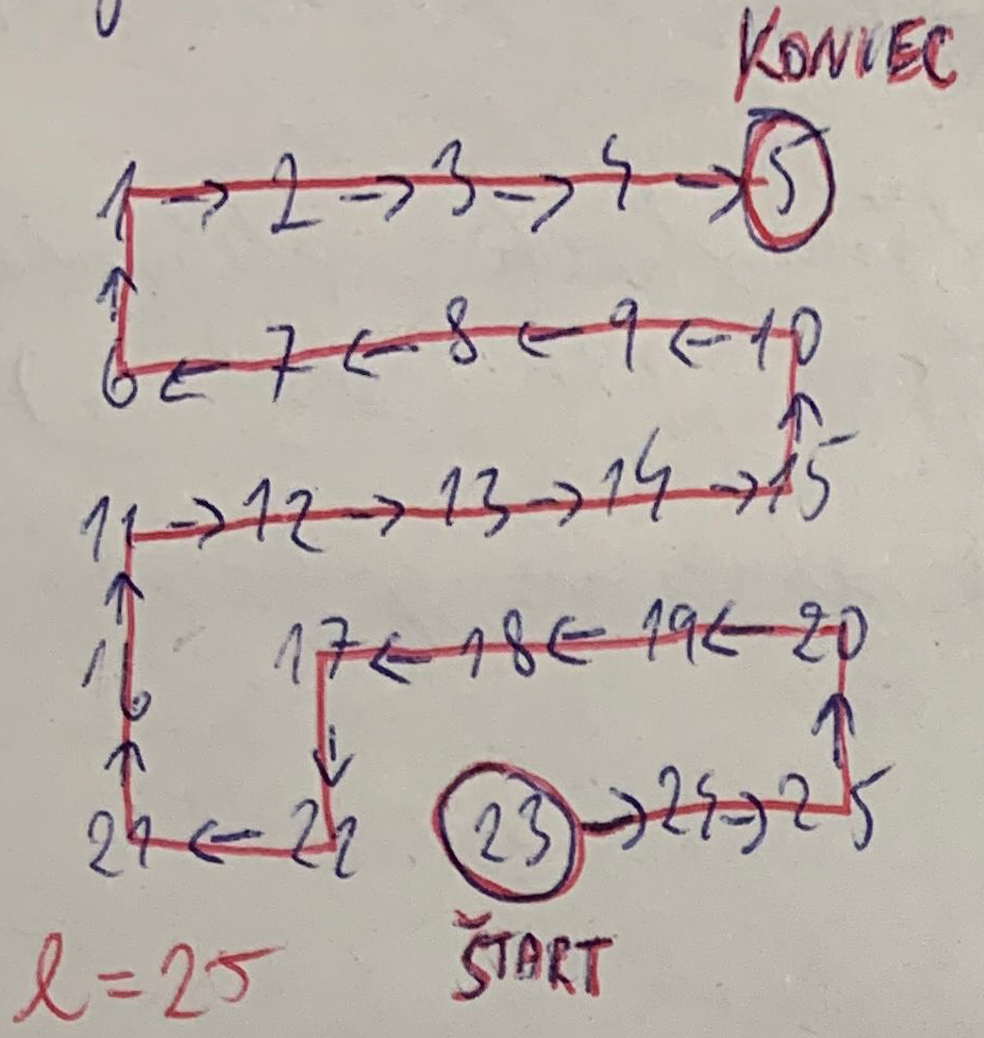 KONIEC
1 → 2 → 3 → 4 → 5
6 ← 7 ← 8 ← 9 ← 10
11 → 12 → 13 → 14 → 15
16 17 ← 18 ← 19 ← 20
21 ← 22 23 → 24 → 25
ŠTART
l = 25